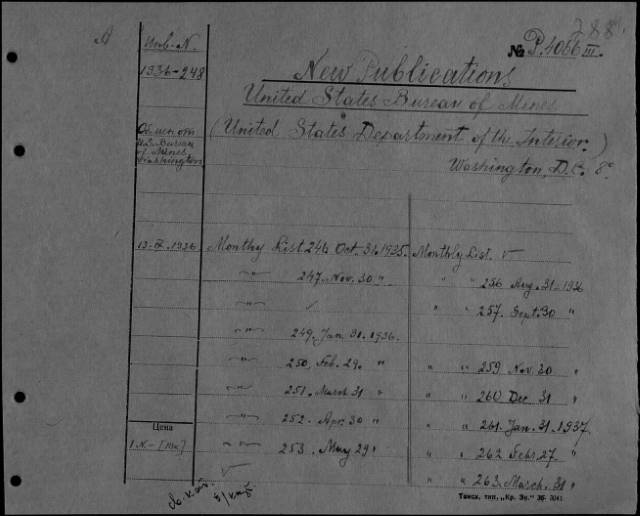 288
A
Инв.-N.
1936-248
№ P.4066 III.
New Publications
United States Bureau of Mines
(United States Department of the Interior.)
Washington, D.C. 8°
Обмен от
U.S. Bureau
of Mines
Washington
13-IX.1936 Monthly List 246 Oct. 31.1935.
-"- 247. Nov. 30 "
-"- ✓
-"- 249. Jan. 31. 1936.
-"- 250. Feb. 29. "
-"- 251. March 31 "
-"- 252. Apr. 30 "
-"- 253. May 29 "
✓
Monthly List. ✓
" " 256 Aug. 31-1936
" " 257. Sept. 30 "
" " 259. Nov. 30 "
" " 260 Dec. 31 "
" " 261. Jan. 31. 1937.
" " 262 Febr. 27. "
" " 263. March. 31 "
Цена
1 N.-
Тинск. тип. „Кр. Зн." Зб. 3041